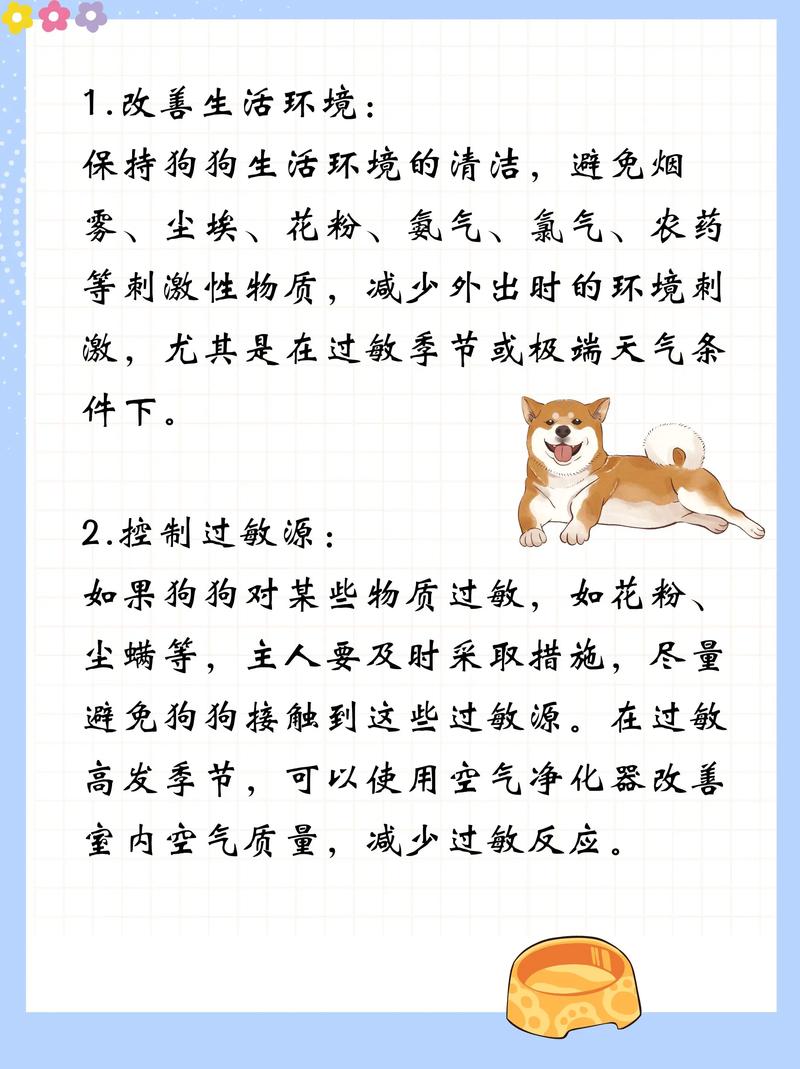 1.改善生活环境：
保持狗狗生活环境的清洁，避免烟
雾、尘埃、花粉、氨气、氯气、农药
等刺激性物质，减少外出时的环境刺
激，尤其是在过敏季节或极端天气条
件下。
2.控制过敏源：
如果狗狗对某些物质过敏，如花粉、
尘螨等，主人要及时采取措施，尽量
避免狗狗接触到这些过敏源。在过敏
高发季节，可以使用空气净化器改善
室内空气质量，减少过敏反应。